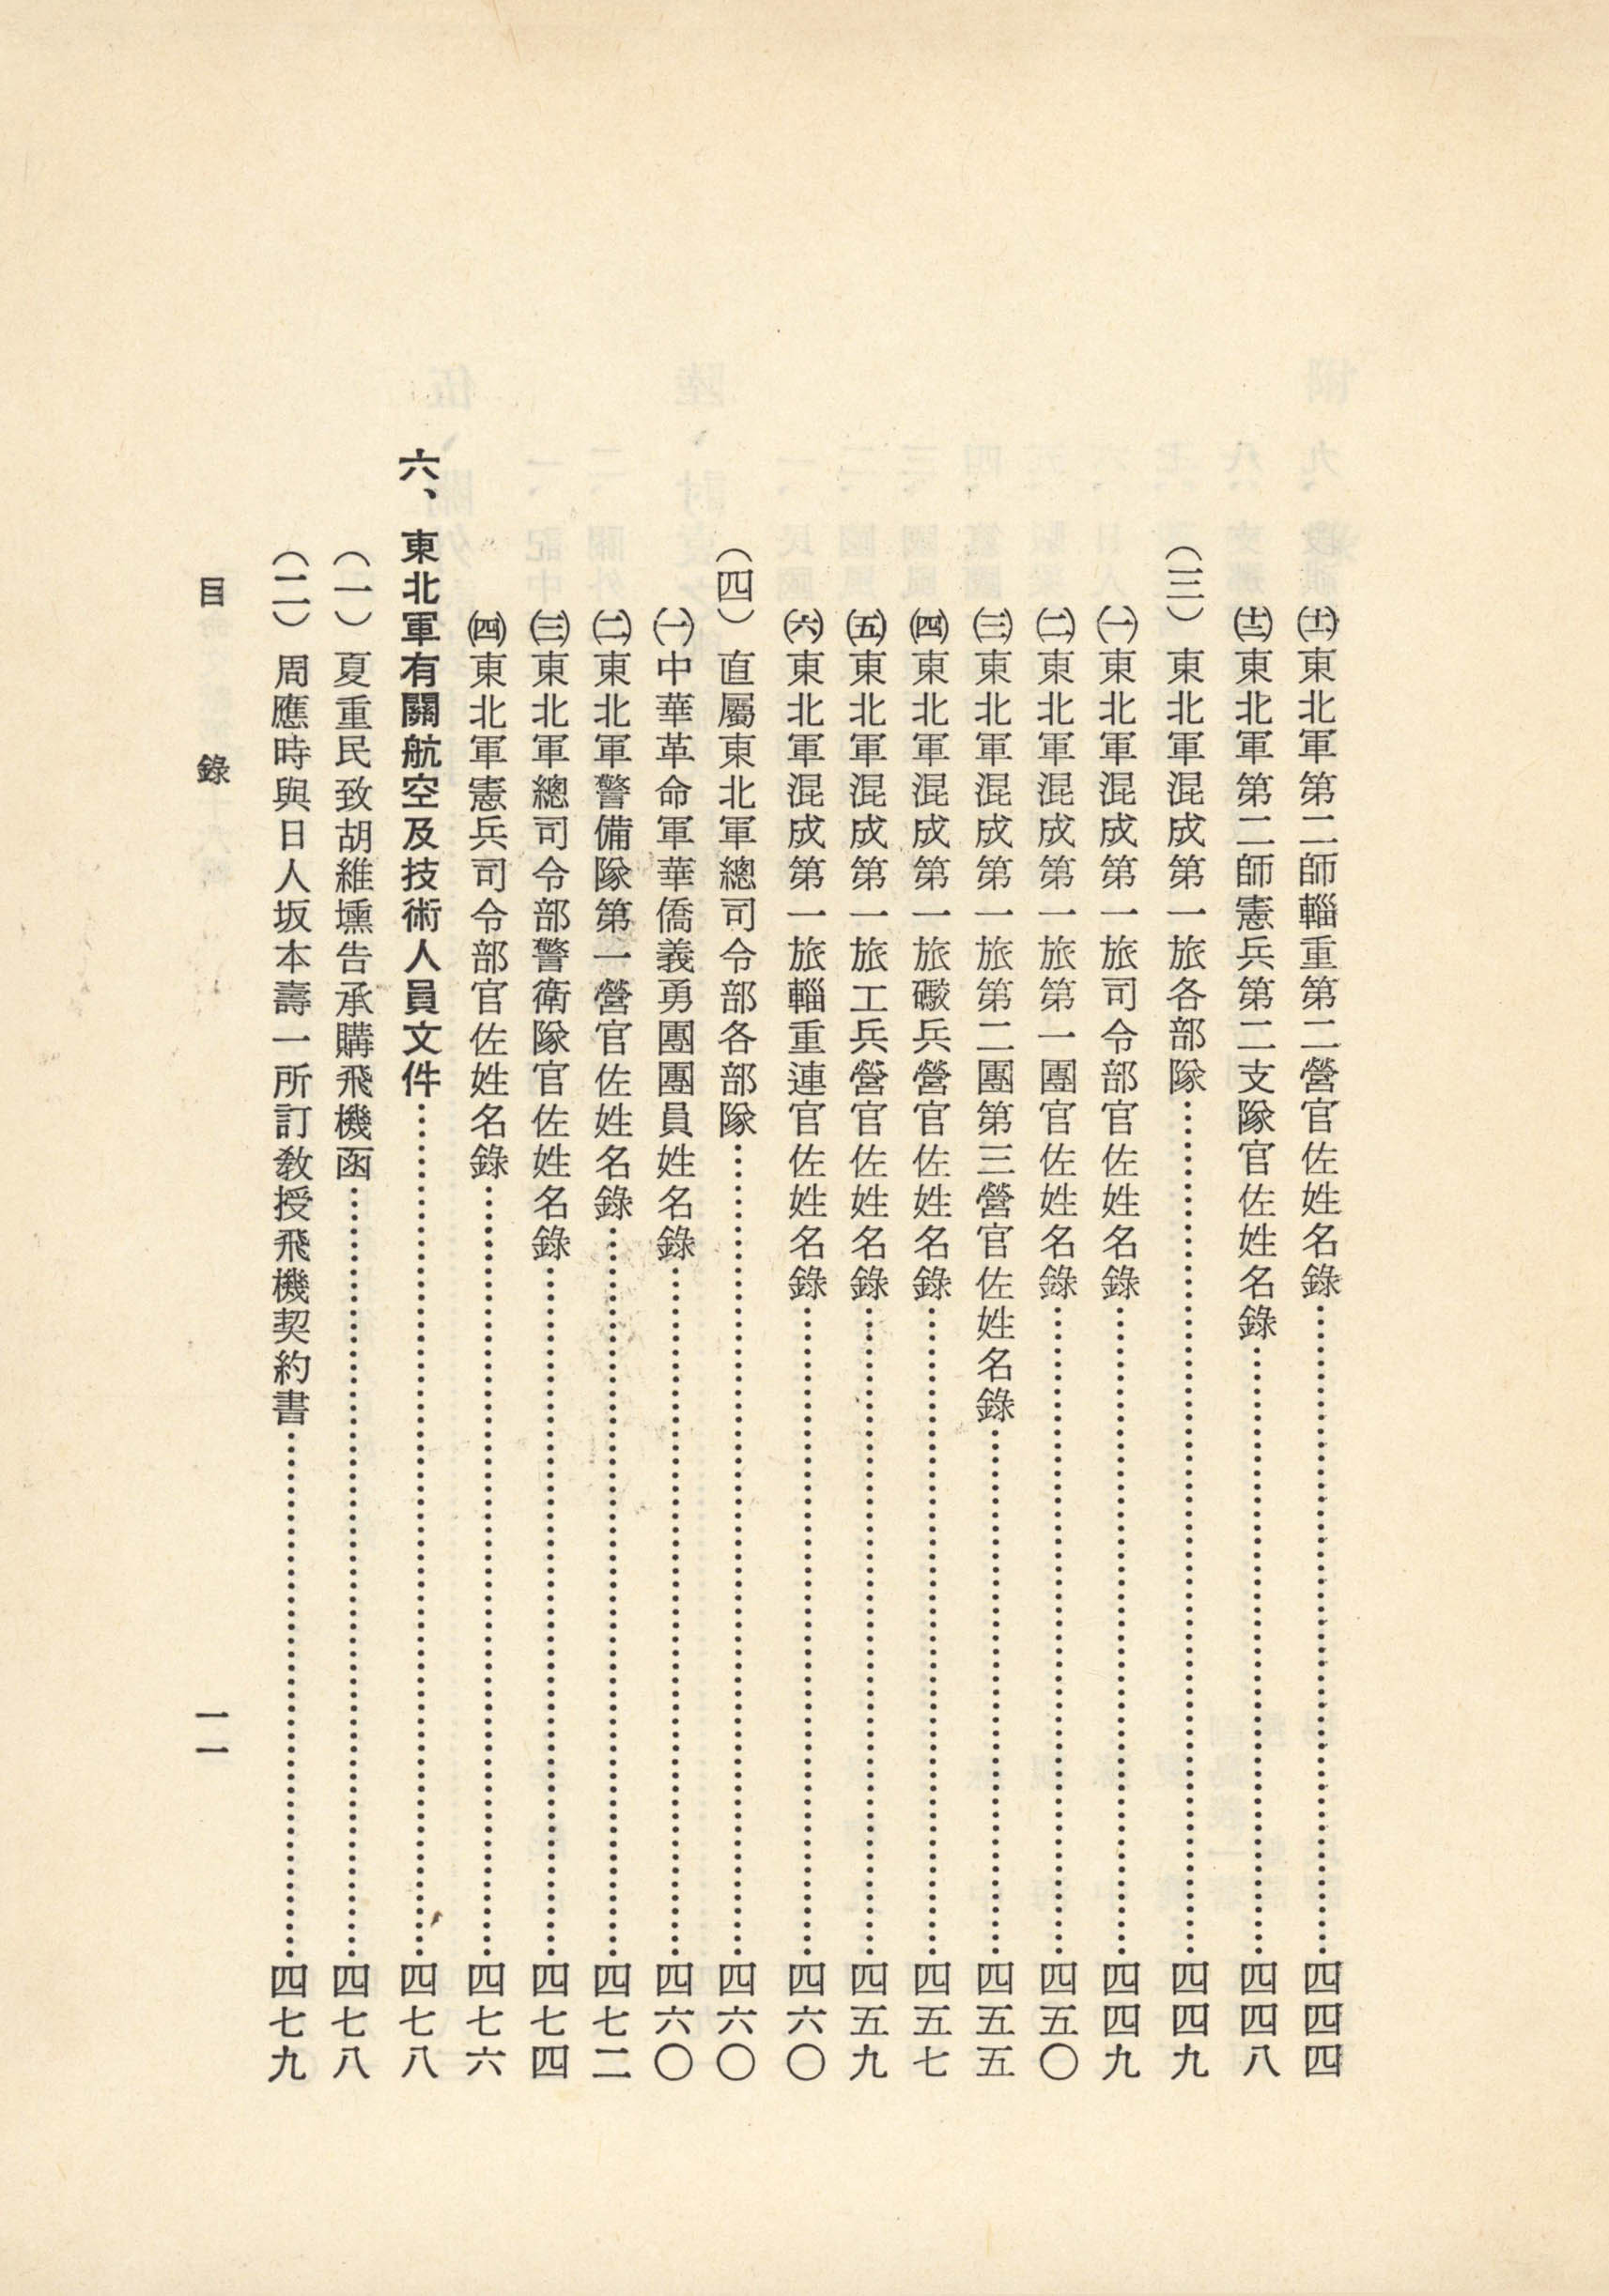 ㈩㈠東北軍第二師輜重第二營官佐姓名錄……四四四
㈩㈡東北軍第二師憲兵第二支隊官佐姓名錄……四四八
（三）東北軍混成第一旅各部隊……四四九
㈠東北軍混成第一旅司令部官佐姓名錄……四四九
㈡東北軍混成第一旅第一團官佐姓名錄……四五〇
㈢東北軍混成第一旅第二團第三營官佐姓名錄……四五五
㈣東北軍混成第一旅礮兵營官佐姓名錄……四五七
㈤東北軍混成第一旅工兵營官佐姓名錄……四五九
㈥東北軍混成第一旅輜重連官佐姓名錄……四六〇
（四）直屬東北軍總司令部各部隊……四六〇
㈠中華革命軍華僑義勇團團員姓名錄……四六〇
㈡東北軍警備隊第一營官佐姓名錄……四七二
㈢東北軍總司令部警衛隊官佐姓名錄……四七四
㈣東北軍憲兵司令部官佐姓名錄……四七六
六、東北軍有關航空及技術人員文件……四七八
（一）夏重民致胡維壎告承購飛機函……四七八
（二）周應時與日人坂本壽一所訂敎授飛機契約書……四七九
目錄
一一